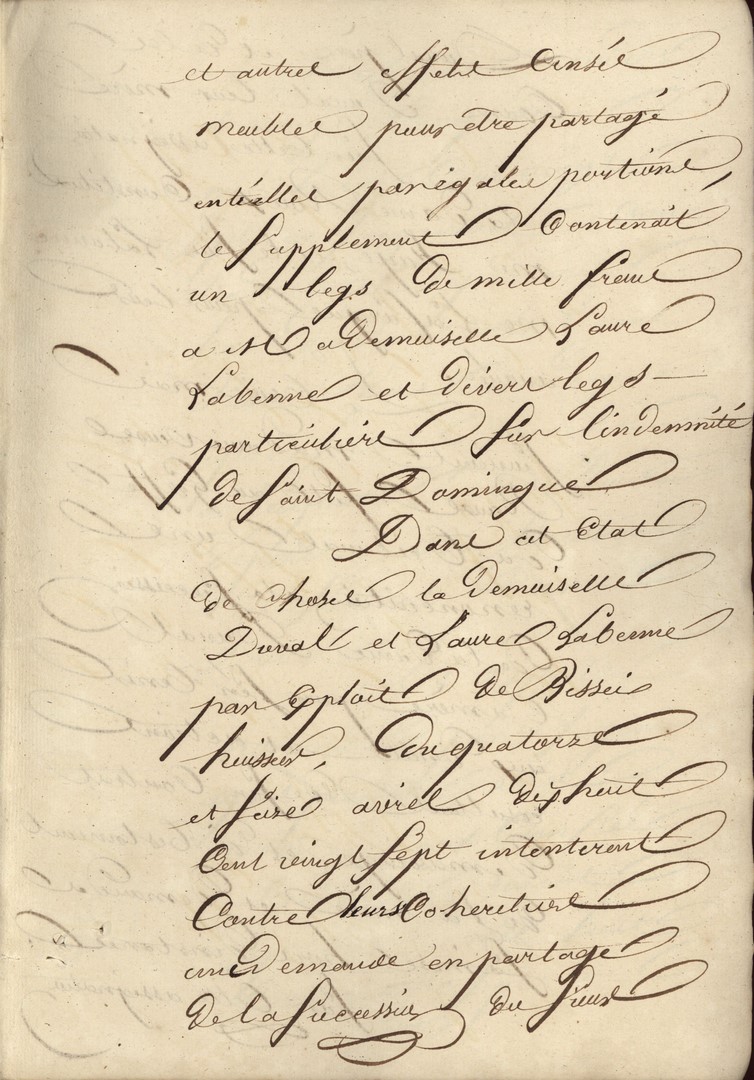 et autres effets censés
meubles pour être partagé
entre elles par égales portions,
le Supplement Contenait
un legs de mille francs
a Mademoiselle Laure
Labenne et divers legs
particuliers Sur l'indemnité
de Saint Domingue
Dans cet Etat
de choses la Demoiselle
Duval et Laure Labenne
par Exploit de Bissei
huissier, du quatorze
et Seize avril dixhuit
Cent vingt Sept intenterent
Contre leurs Coheritiers
une Demande en partage
de la Succession du Sieur